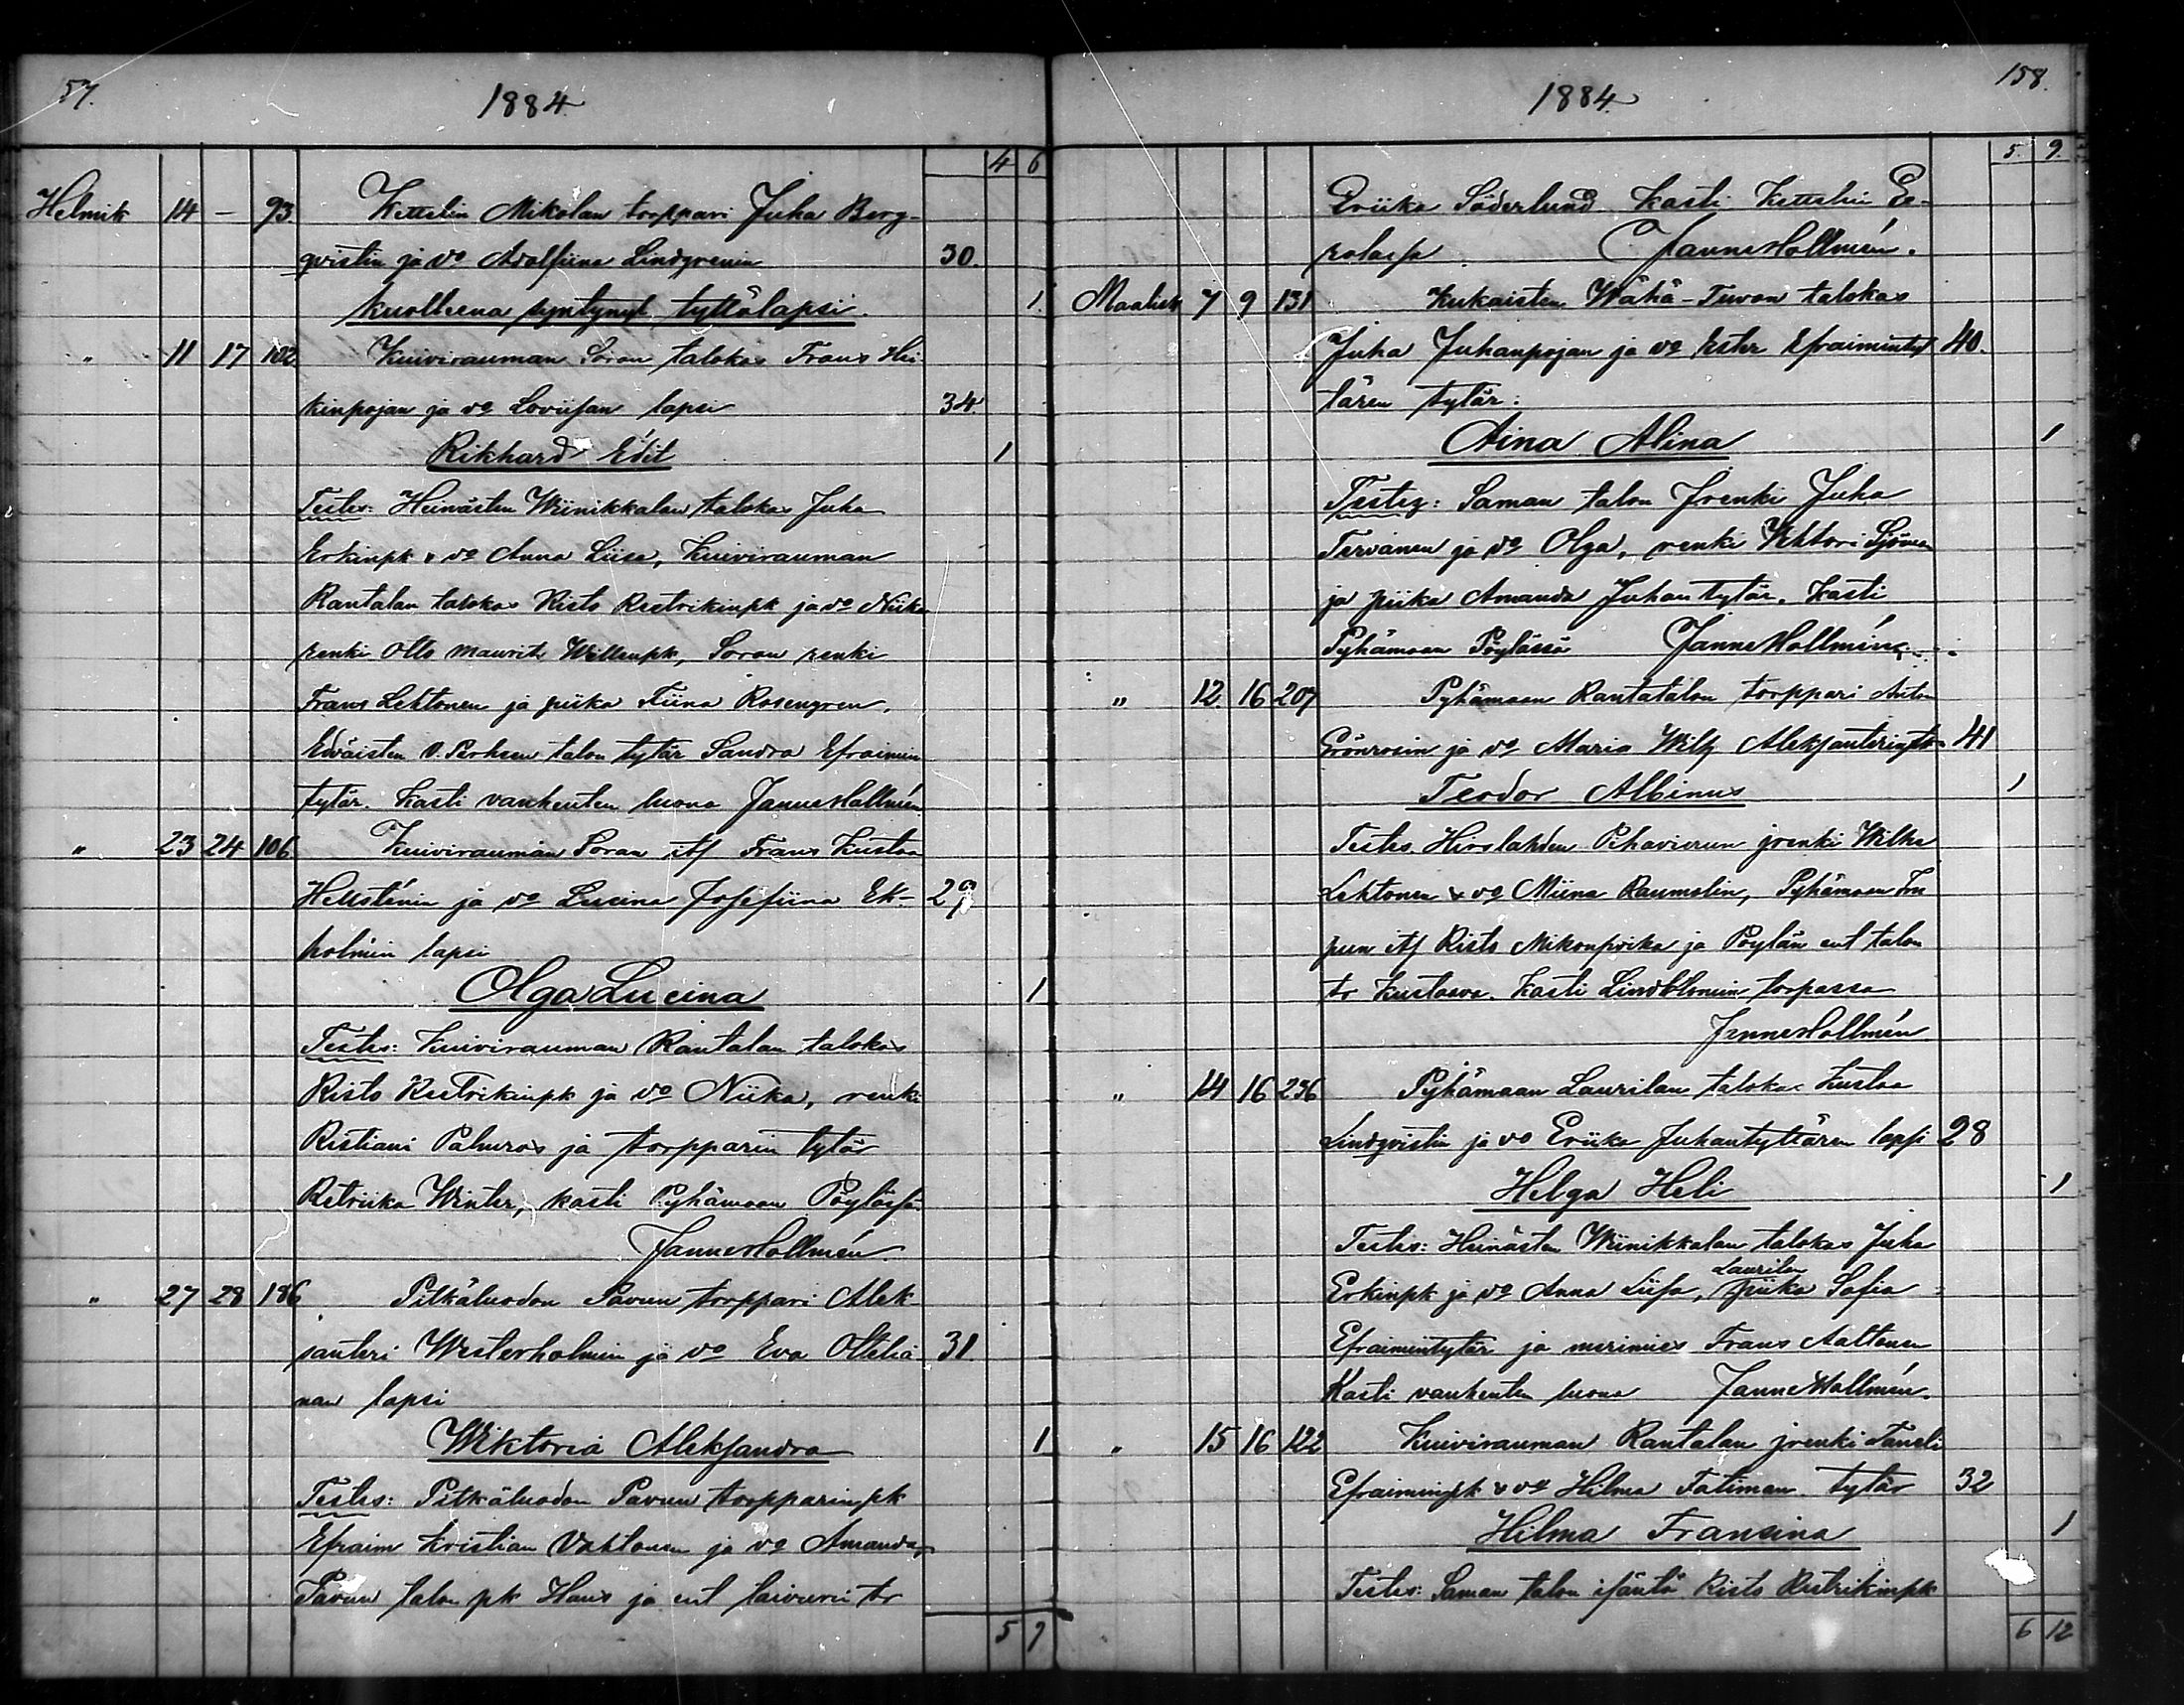 57.
1884
4 6
Helmik 14 - 93. Kettelin Mikolan torppari Juha Berg-
qvistin ja vo Adolfiina Lindgrenin 30.
kuolleena syntynyt tyttölapsi. 1.
" 11 17 102. Kuivirauman Soran talokas Frans Hei-
kinpojan ja vo Loviisan lapsi 34
Rikhard Edit 1
Testes: Heinästen Wiinikkalan talokas Juha
Erkinpk & vo Anna Liisa, Kuivirauman
Rantalan talokas Risto Reetrikinpk ja vo Niika
renki Otto Maurits Willenpk, Soran renki
Frans Lehtonen ja piika Fiina Rosengren,
Edväisten V. Perheen talon tytär Sandra Efraimin
tytär. Kasti vanhenten luona Janne Hollmén
" 23 24 106 Kuivirauman Soran itf Frans Kustaa
Hellsténin ja vo Lucina Josefiina Ek- 29
holmin lapsi
Olga Lucina 1
Testes: Kuivirauman Rantalan talokas
Risto Reetrikinpk ja vo Niika, renki
Ristiani Palmros ja torpparin tytär
Retriika Winter, kasti Pyhämaan Pöylässä
Janne Hollmén
" 27 28 186 Pitkäluodon Pavun torppari Alek-
santeri Westerholmin ja vo Eva Ottelia- 31.
nan lapsi
Wiktoria Aleksandra 1
Testes: Pitkäluodon Pavun torpparinpk
Efraim Kristian Vahtonen ja vo Amanda,
Pavun talon pk Hans ja ent laivurin tr
5 9
158.
1884
5. 9.
Eriika Söderlund. Kasti Kettelin Ee-
rolassa. Janne Hollmén.
Maalisk 7 9 131 Kukaisten Wähä-Tuvan talokas
Juha Juhanpojan ja vo Ester Efraimintyt 40.
tären tytär:
Aina Alina 1
Testes: Saman talon jrenki Juha
Tervanen ja vo Olga, renki Vihtori Sjöman
ja piika Amanda Juhantytär. Kasti
Pyhämaan Pöylässä Janne Hollmén
" 12. 16 207 Pyhämaan Rantatalon torppari Anton
Grönroosin ja vo Maria Wilh Aleksanterintr 41
Teodor Albinus 1
Testes. Hirslahden Pihavierun jrenki Wilhe
Lehtonen & vo Miina Raumolin, Pyhämaan
itf Risto Mikonpoika ja Pöylän ent talon
tr Kustaava. Kasti Lindblomin torpassa
Janne Hollmén
" 14 16 236 Pyhämaan Laurilan talokas Kustaa
Lindqvistin ja vo Eriika Juhantyttären lapsi 28
Helga Heli 1
Testes: Heinästen Wiinikkalan talokas Juha
Erkinpk ja vo Anna Liisa, Laurilan piika Sofia
Efraimintytär ja merimies Frans Aaltonen
Kasti vanhenten luona Janne Hollmén.
" 15 16 122 Kuivirauman Rantalan jrenki Taneli
Efraiminpk & vo Hilma Fatiman tytär 32
Hilma Fransina 1
Testes: Saman talon isäntä Risto Reetrikinpk
6 12